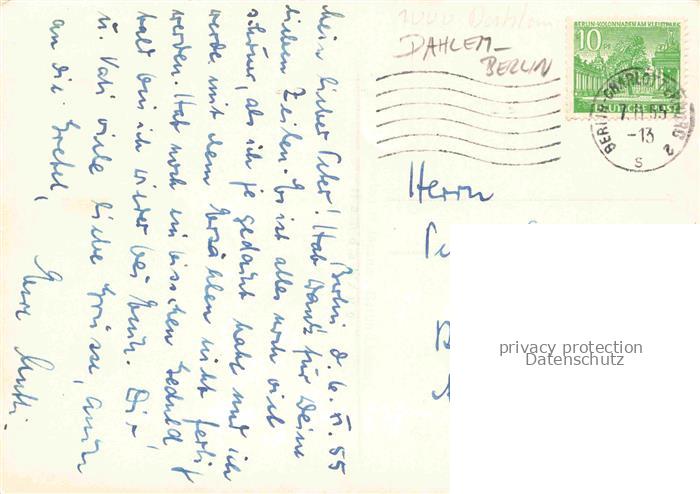 Berlin d. 6. XI. 55
Mein lieber Peter! Hab Dank für Deine
lieben Zeilen. Es ist alles noch viel
schöner, als ich je gedacht habe und ich
werde mit dem Erzählen nicht fertig
werden. Hab noch ein bisschen Geduld
bald bin ich wieder bei Euch. Dir
u. Vati viele liebe Grüsse, auch
an die Gretel,
Eure Mutti.
1000 Dahlem
DAHLEM-
BERLIN
BERLIN-KOLONNADEN AM KLEISTPARK
10 Pf
DEUTSCHE POST
BERLIN-CHARLOTTENBURG 2
7.11.55
-13
s
Herrn
privacy protection
Datenschutz